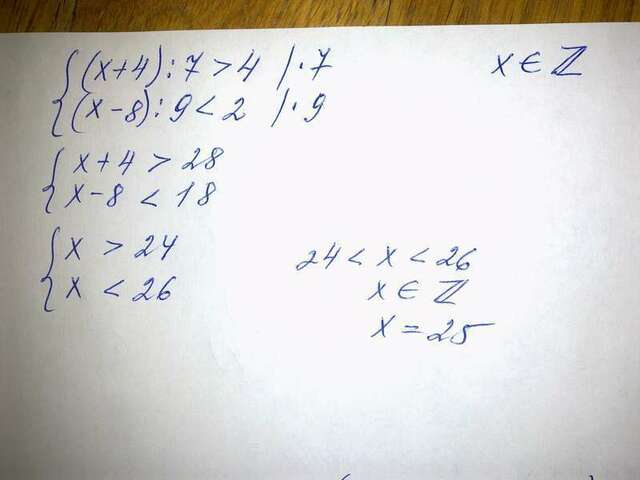 (x+4):7>4 |·7 x∈ℤ
(x-8):9<2 |·9
x+4>28
x-8<18
x>24
x<26
24<x<26
x∈ℤ
x=25